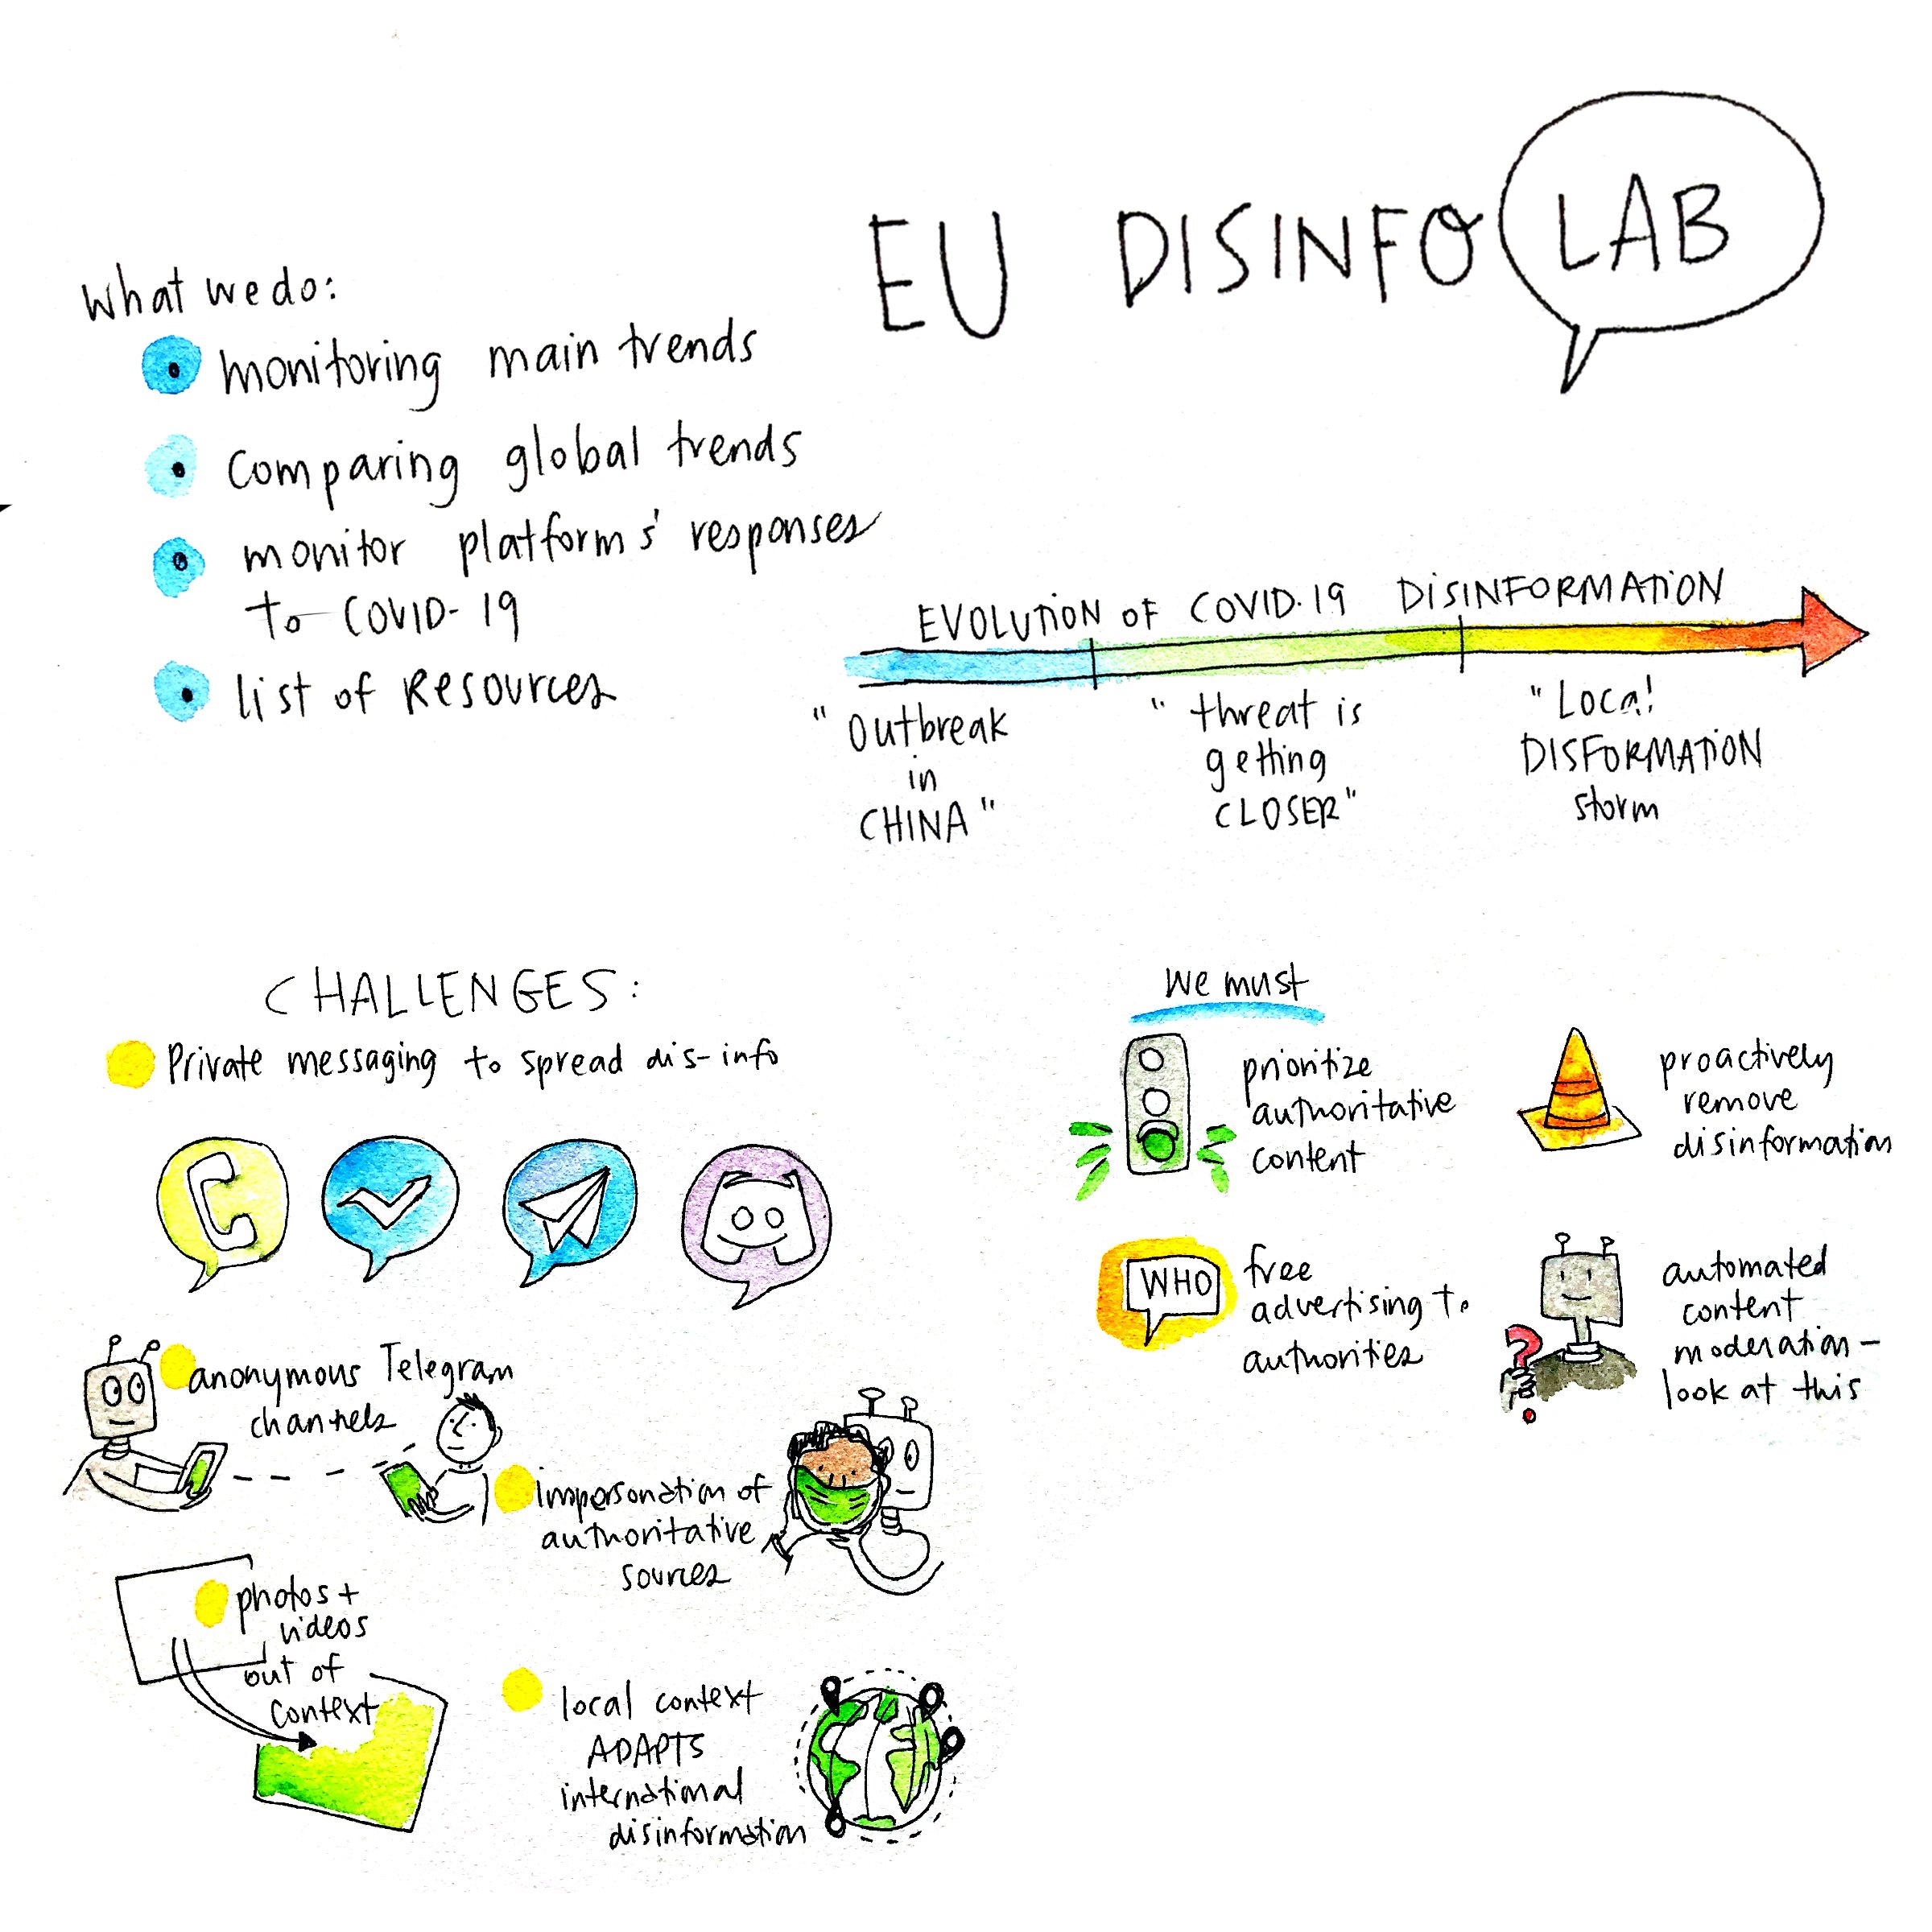 EU DISINFO LAB
What we do:
monitoring main trends
comparing global trends
monitor platforms' responses
to COVID-19
list of Resources
EVOLUTION OF COVID.19 DISINFORMATION
"Outbreak
in
CHINA"
"threat is
getting
CLOSER"
"Local
DISFORMATION
storm
CHALLENGES:
Private messaging to spread dis-info
anonymous Telegram
channels
impersonation of
authoritative
sources
photos +
videos
out of
context
local context
ADAPTS
international
disinformation
We must
prioritize
authoritative
content
proactively
remove
disinformation
WHO
free
advertising to
authorities
automated
content
moderation –
look at this
?